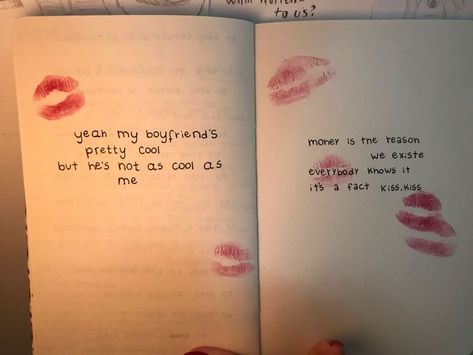 to us?
yeah my boyfriend's
pretty cool
but he's not as cool as
me
money is the reason
we existe
everybody knows it
it's a fact kiss, kiss